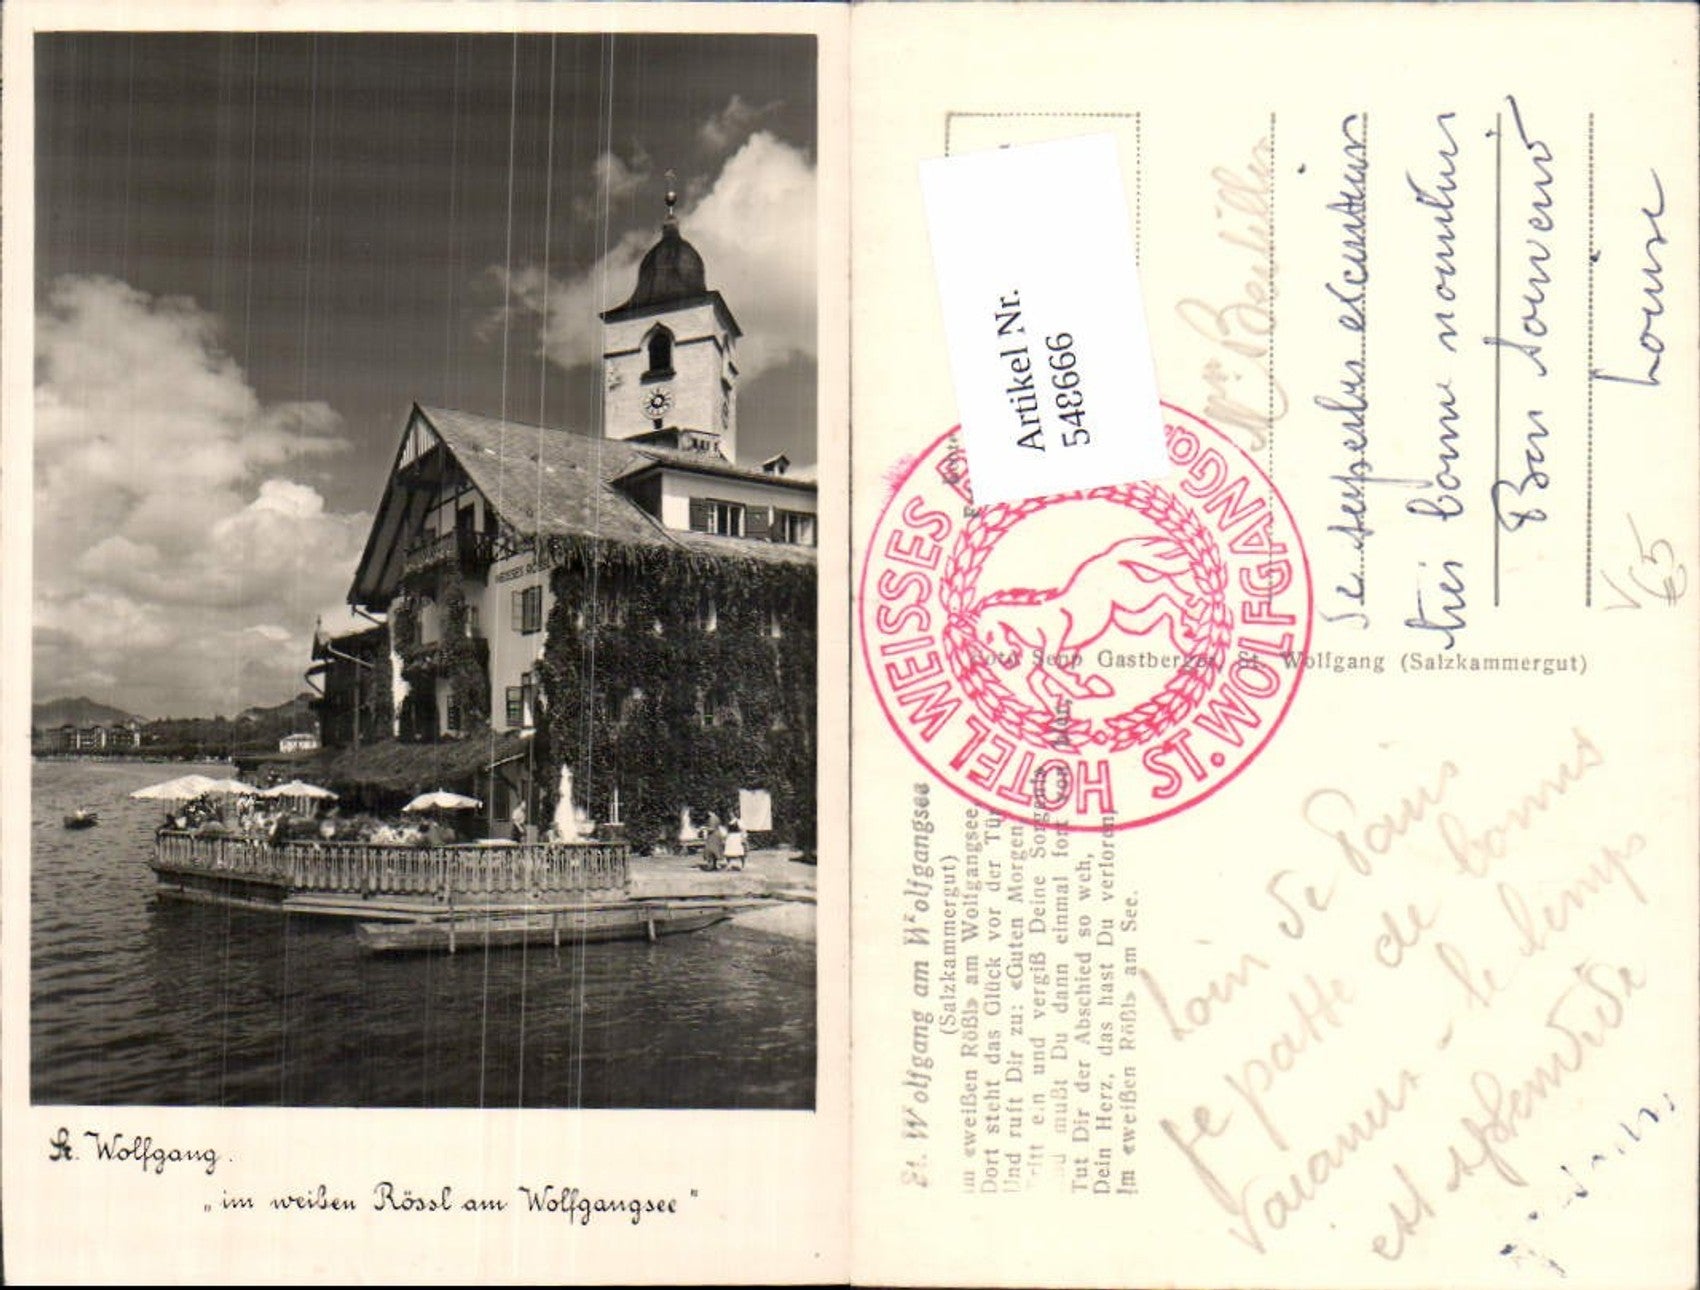 WEISSES RÖSSL
St. Wolfgang.
„im weißen Rössl am Wolfgangsee"
Artikel Nr.
548666
HOTEL WEISSES
ST. WOLFGANG
St. Wolfgang am Wolfgangsee
(Salzkammergut)
Im «weißen Rößl» am Wolfgangsee,
Dort steht das Glück vor der Tür
Und ruft Dir zu: «Guten Morgen
Tritt ein und vergiß Deine Sorgen!»
mußt Du dann einmal fort von hier,
Tut Dir der Abschied so weh,
Dein Herz, das hast Du verloren
Im «weißen Rößl» am See.
Foto Sepp Gastberger, St. Wolfgang (Salzkammergut)
Loin de Paris
je de bonnes
le temps
est splendide
De superbes excursions
Bon Souvenir
Louise
65